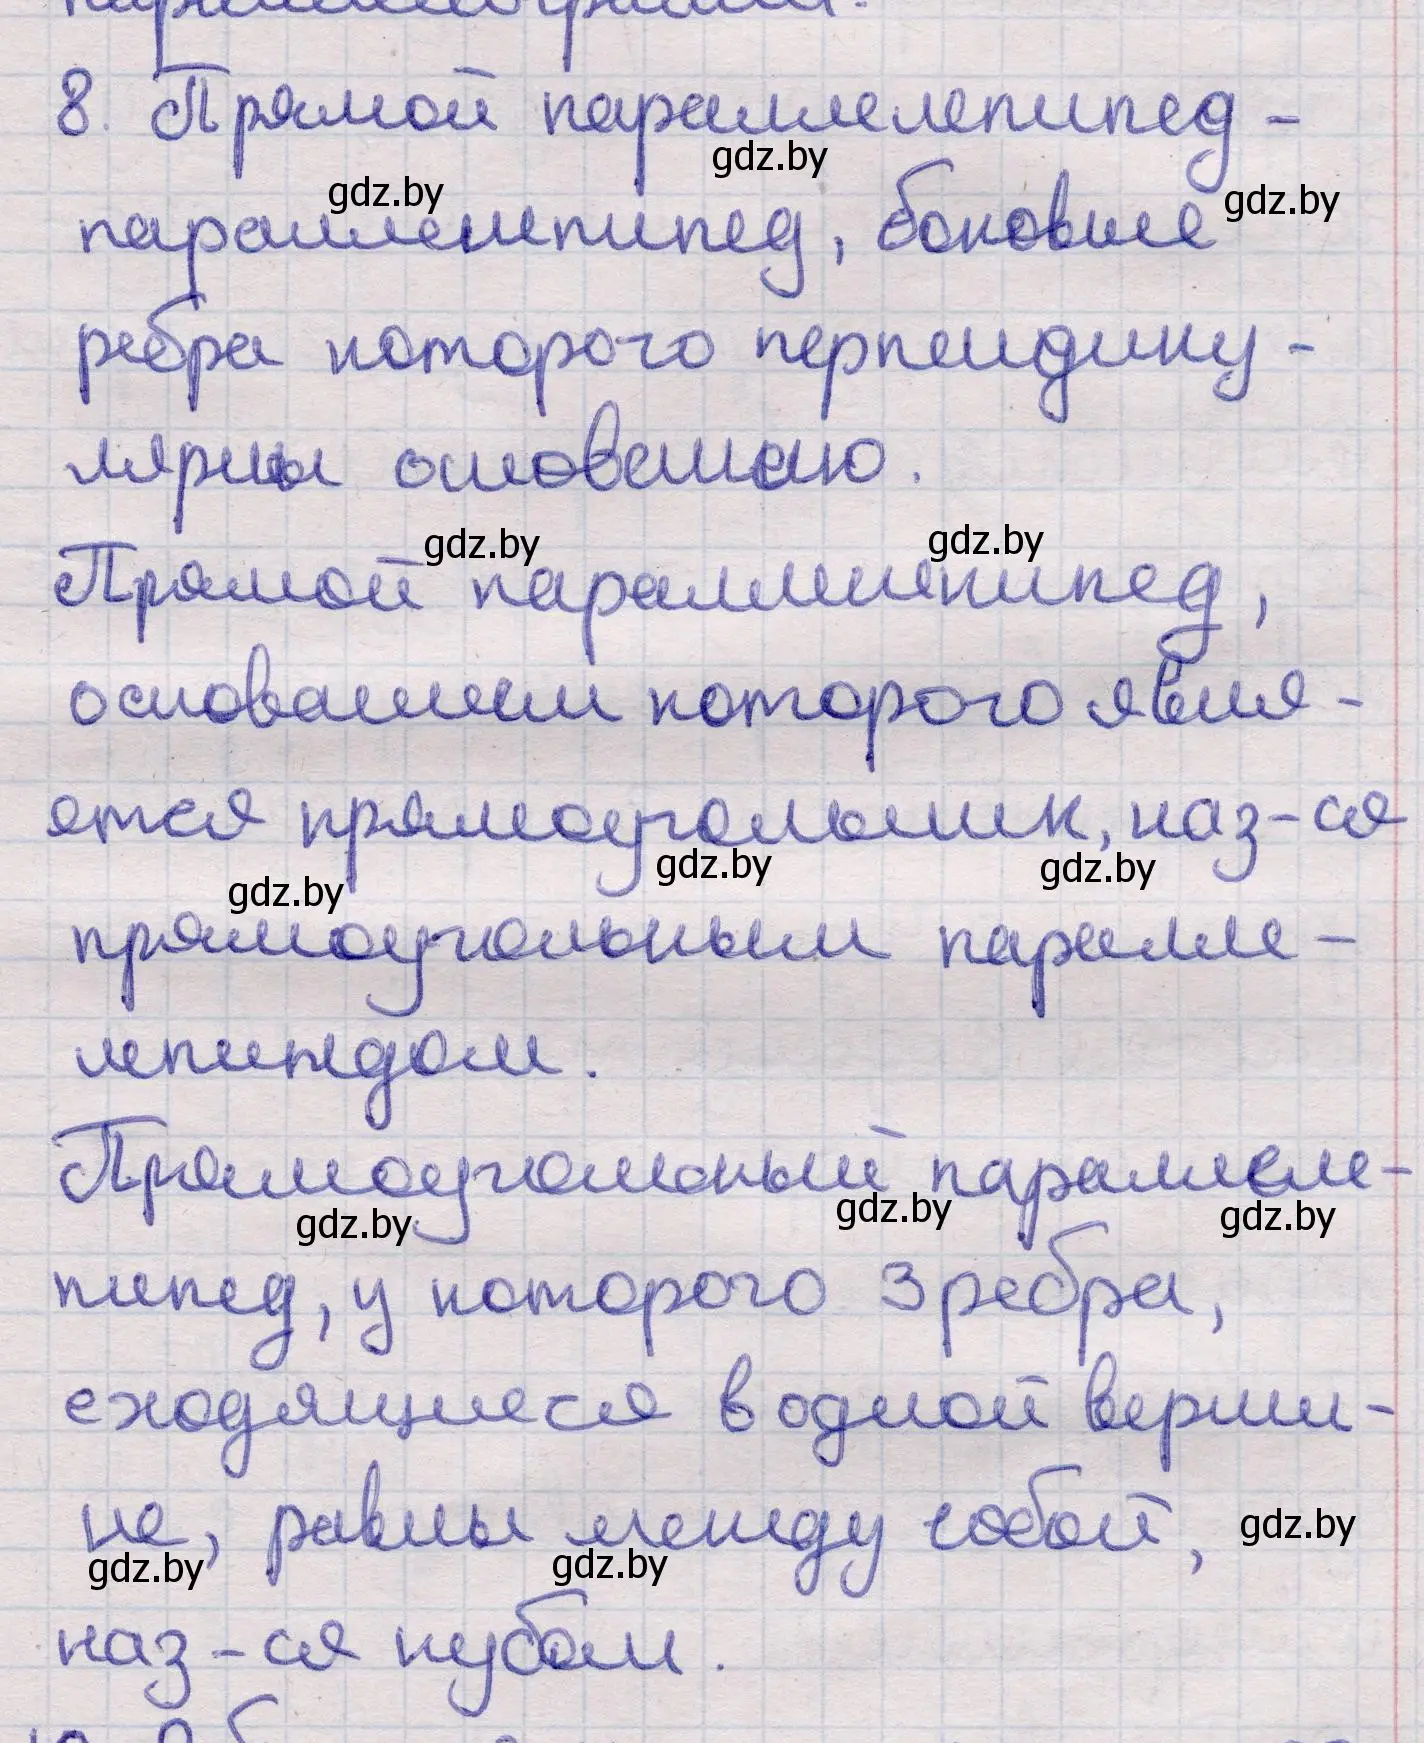 8. Прямой параллелепипед -
параллелепипед, боковые
ребра которого перпендику-
лярны основанию.
Прямой параллелепипед,
основанием которого явля-
ется прямоугольник, наз-ся
прямоугольным паралле-
лепипедом.
Прямоугольный параллеле-
пипед, у которого 3 ребра,
сходящиеся в одной верши-
не, равны между собой,
наз-ся кубом.
gdz.by
gdz.by
gdz.by
gdz.by
gdz.by
gdz.by
gdz.by
gdz.by
gdz.by
gdz.by
gdz.by
gdz.by
gdz.by
gdz.by